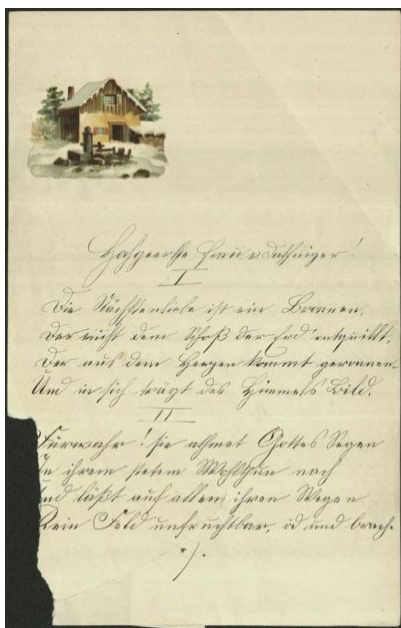 Hochgeehrte Frau v
I
Die Nächstenliebe ist ein Bronnen,
Der nicht dem Schoß der Erd' entquillt,
Der aus dem Herzen kommt geronnen
Und in sich trägt des Himmels Bild.
II
Fürwahr! sie athmet Gottes Segen
In ihrem stetem Wohlthun nach
Und läßt auf allen ihren Wegen
Kein Feld unfruchtbar, öd und brach.